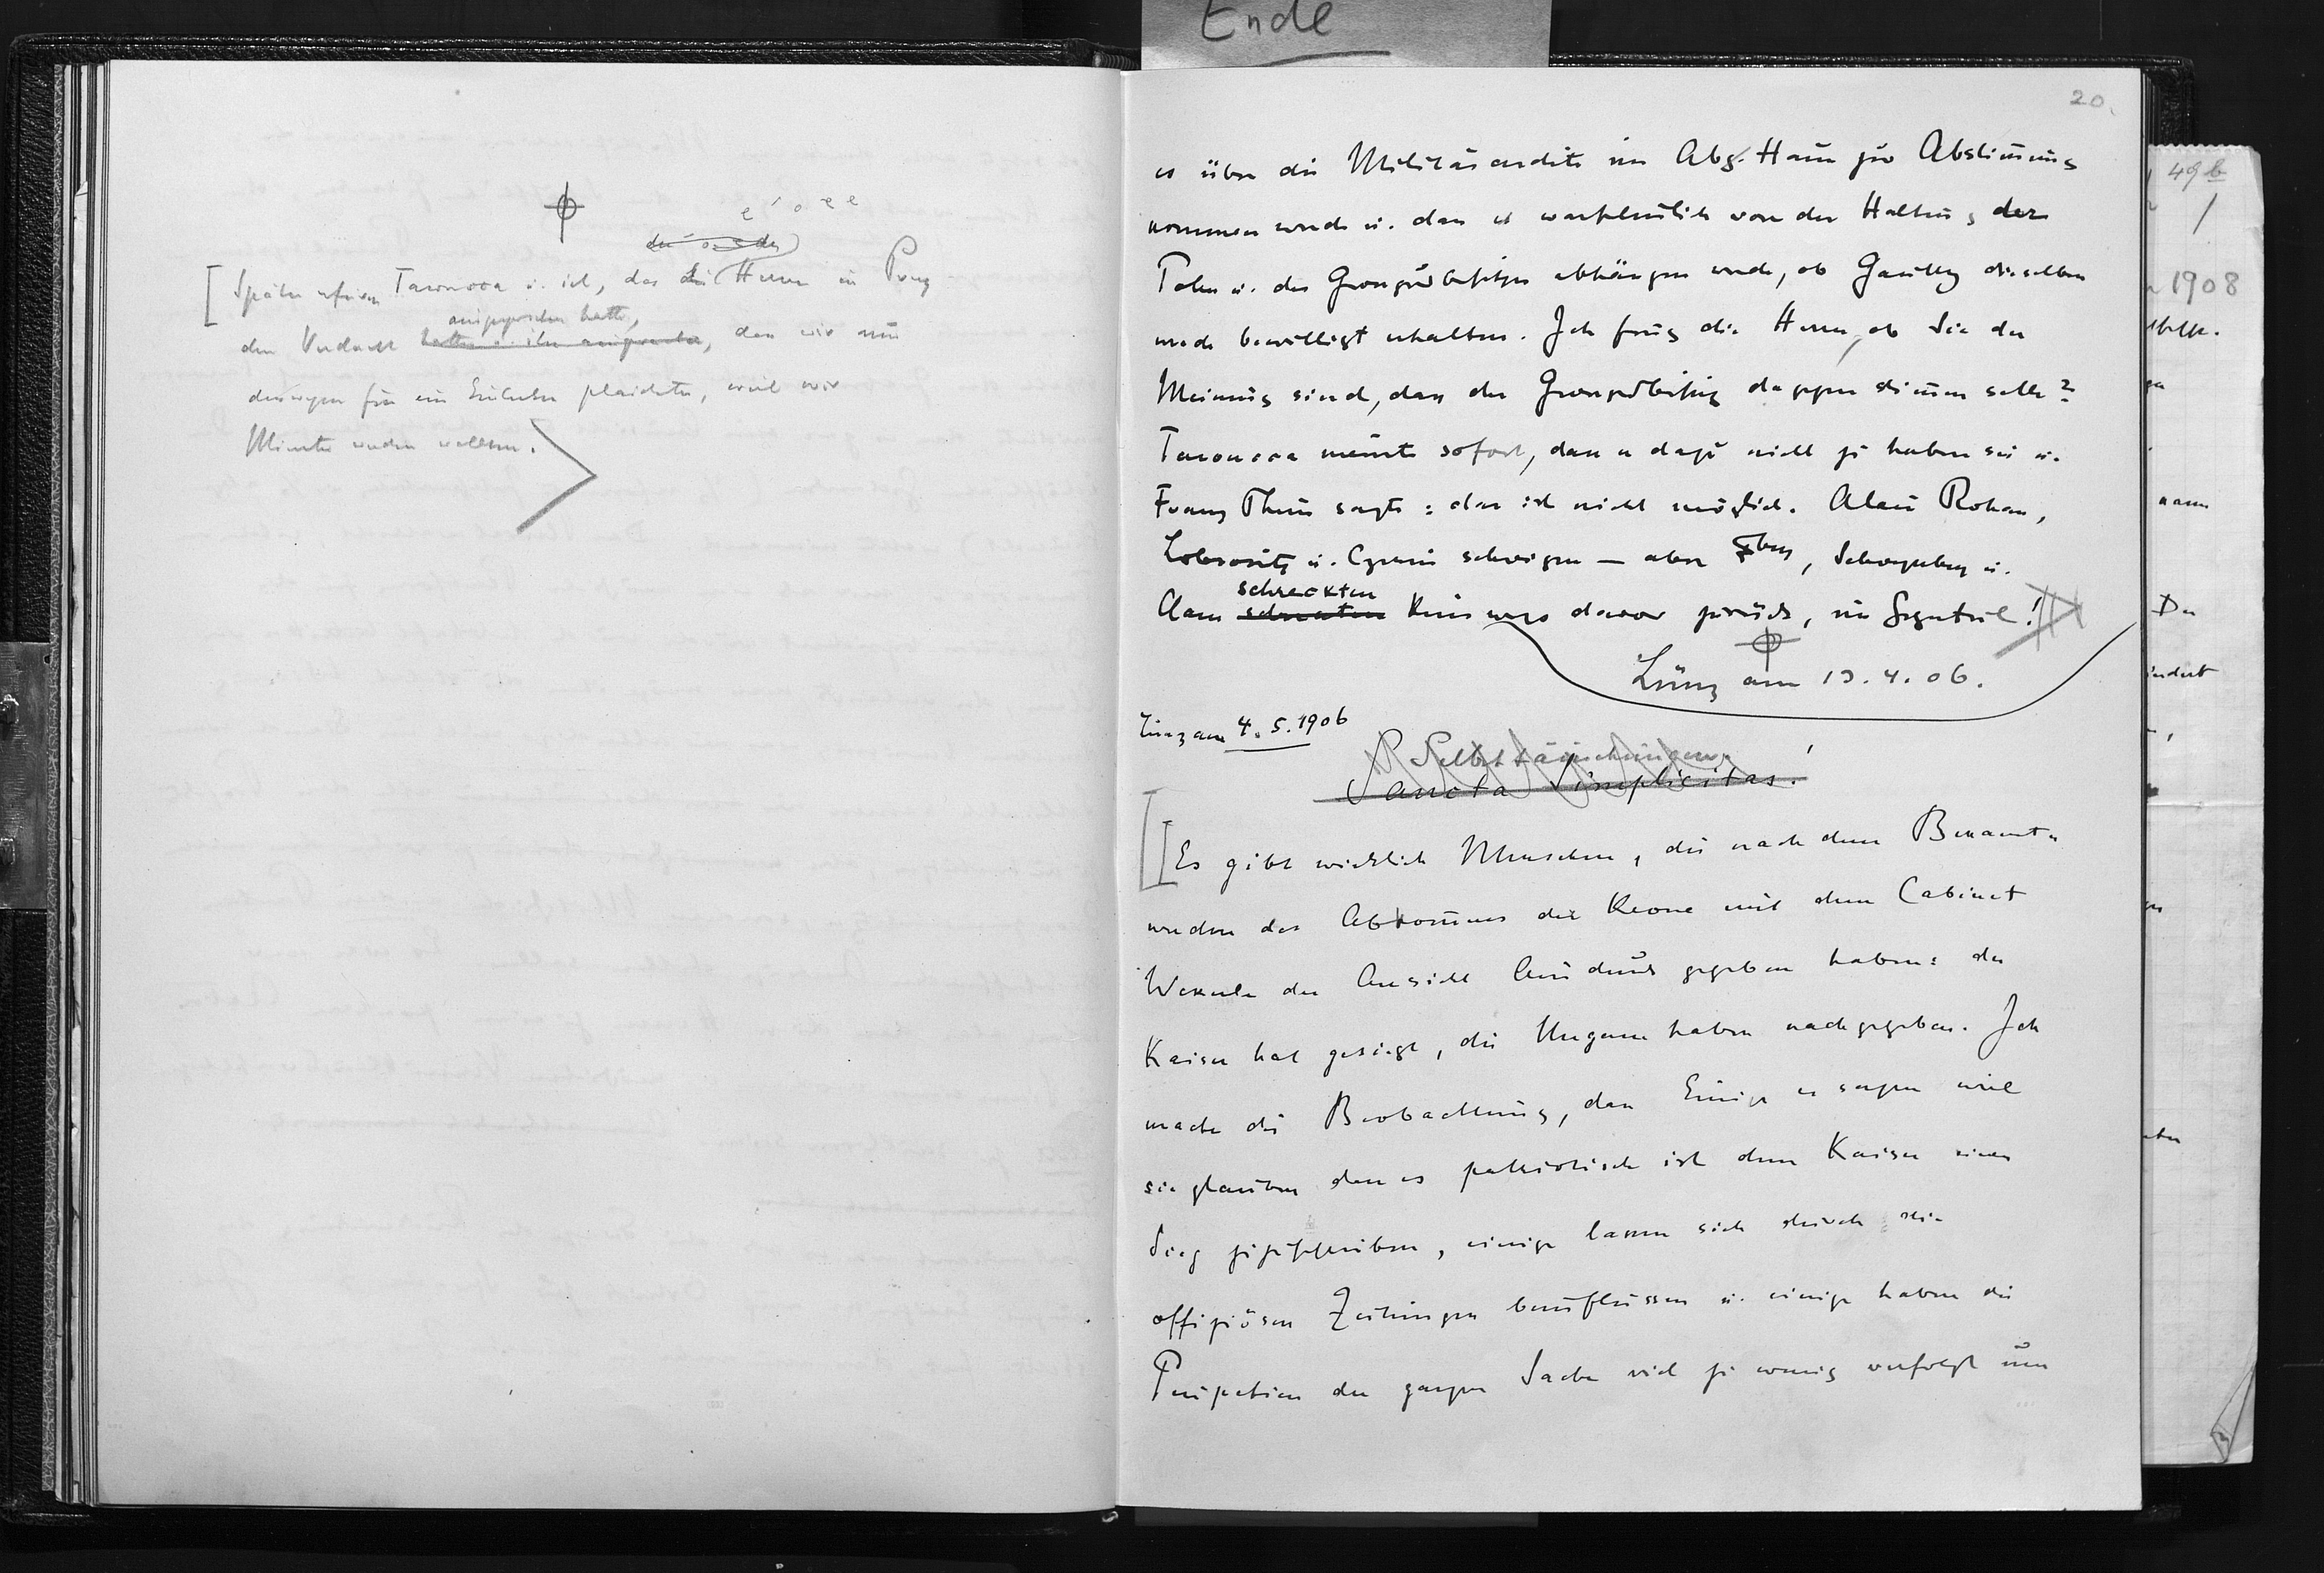 Ende
Später erfuhren Taroucca u. ich, dass die Herren in Prag
den Verdacht ausgesprochen hatten, dass wir nur
deswegen für ein Einlenken plaidirten, weil wir
Minister werden wollten.
20.
es über die Militärcredite im Abg. Haus zur Abstimmung
kommen werde u. dass es wahrscheinlich von der Haltung der
Polen u. des Grossgrundbesitzes abhängen werde, ob Gautsch dieselben
werde bewilligt erhalten. Ich frug die Herren, ob Sie der
Meinung sind, dass der Grossgrundbesitz dagegen stimmen solle?
Taroucca meinte sofort, dass er dazu nicht zu haben sei u.
Franz Thun sagte: das ist nicht möglich. Alain Rohan,
Lobkowitz u. Czernin schwiegen — aber , Schwarzenberg u.
Clam schreckten keineswegs davor zurück, im Gegenteil!
Linz am 13.4.06.
Linz am 4.5.1906
Selbsttäuschungen
Sancta Simplicitas!
Es gibt wirklich Menschen, die nach dem Bekannt-
werden des Abkommens der Krone mit dem Cabinet
Wekerle der Ansicht Ausdruck gegeben haben: der
Kaiser hat gesiegt, die Ungarn haben nachgegeben. Ich
mache die Beobachtung, dass Einige es sagen weil
sie glauben dass es patriotisch ist dem Kaiser einen
Sieg zuzuschreiben, einige lassen sich durch die
offiziösen Zeitungen beeinflussen u. einige haben die
Peripetien der ganzen Sache viel zu wenig verfolgt um
49b
1
1908
kann
Der
indert